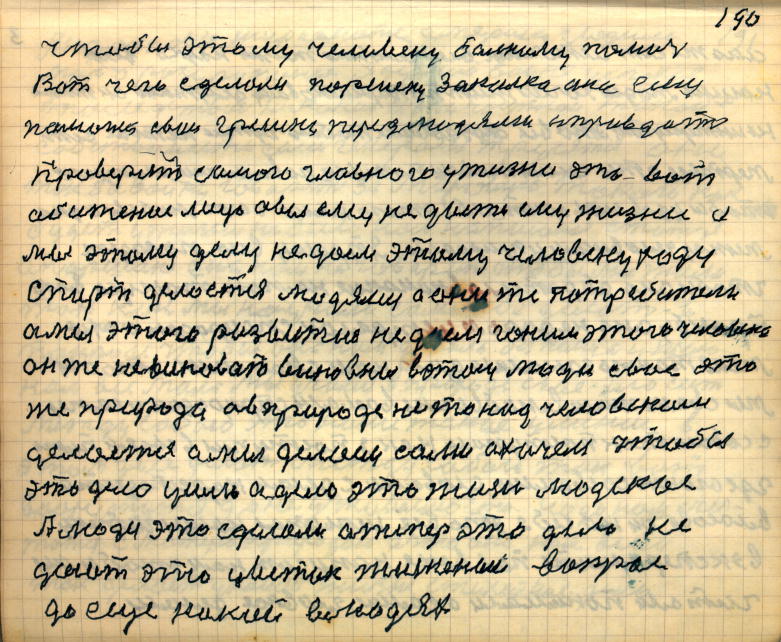 190
чтобы этому человеку больному помич
Вот чего сделали парнеку Закалка она ему
паможа свои грешнц передлюдями оправдатъ
Проверитъ самого главного ужизни это вот
обиженое лицо авы ему недаете ему жизни а
мы этому делу недаем этаму человеку роду
Спирт делается людями а они те потребители
амы этого развитие не даем гоним этого человека
он же невиноватъ виновны вэтом люди свое это
же природа авприроде нетонад человеком
делается амы делаем сами ахичем чтобы
это дело ушло адело это жизнь людское
А люди это сделали атипер это дело не
дают это цветок жизненой вопрос
да еще накий выходят